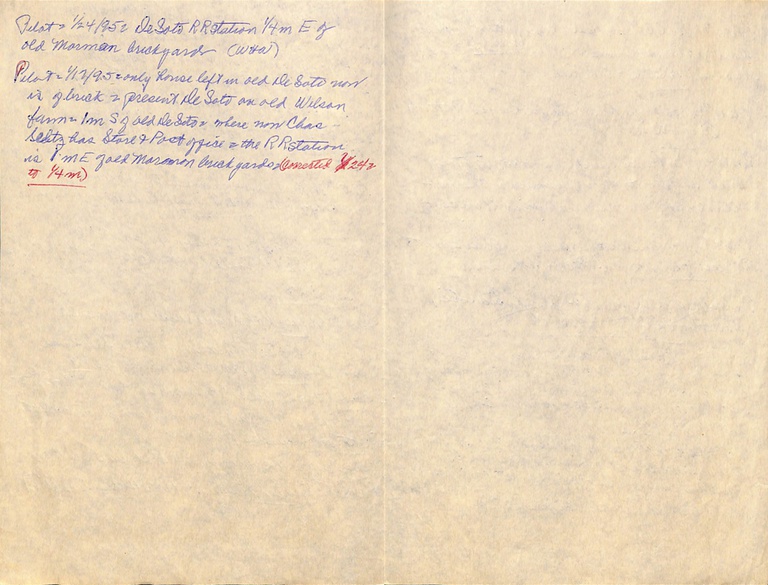 Pilot = 1/24/95 = DeSoto R R Station 1/4 m E of
old Mormon brickyards (WHW)
Pilot = 1/17/95 = only house left in old De Soto now
is of brick = present De Soto on old Wilson
farm = 1 m S of old DeSoto = where now Chas
has Store & Post office = the R R Station
is 1 m E of old Mormon brickyards = (corrected 1/24 =
to 1/4 m.)